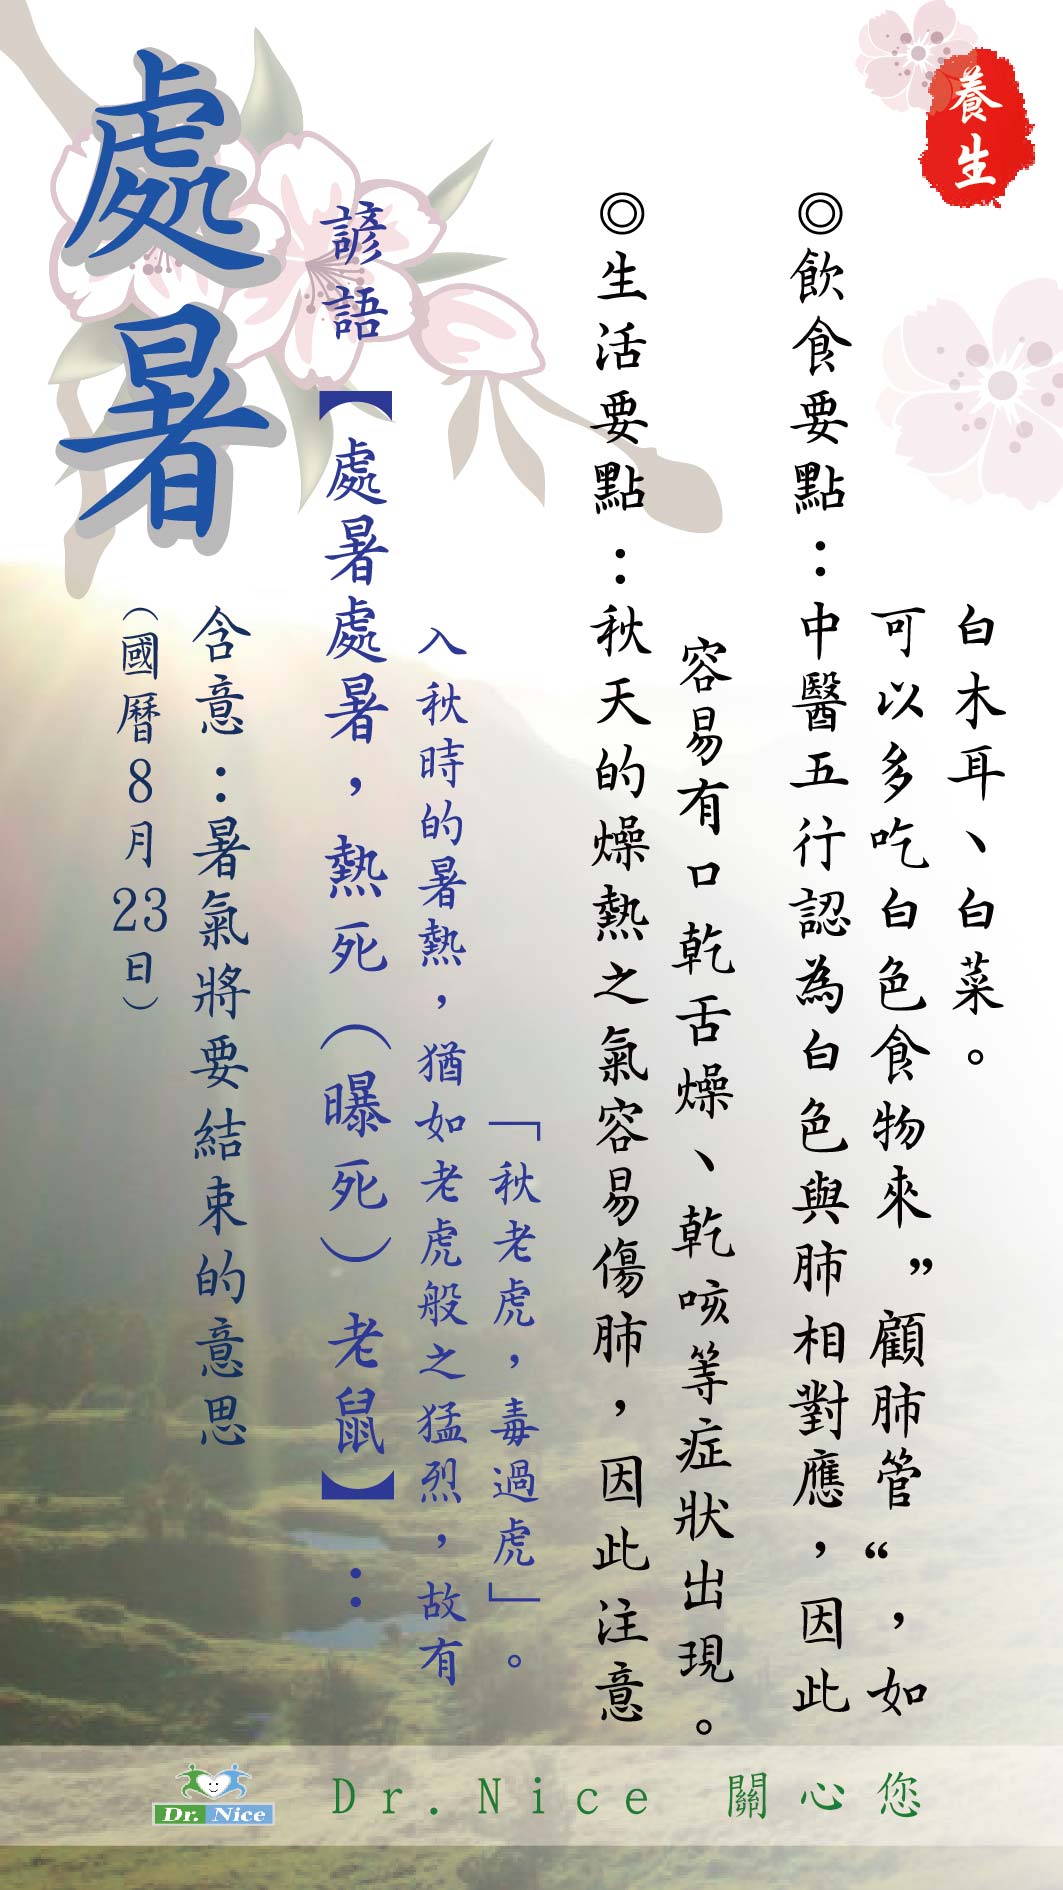 處暑
(國曆8月23日)
含意：暑氣將要結束的意思
諺語【處暑處暑，熱死(曝死)老鼠】：
入秋時的暑熱，猶如老虎般之猛烈，故有
「秋老虎，毒過虎」。
◎生活要點：秋天的燥熱之氣容易傷肺，因此注意
容易有口乾舌燥、乾咳等症狀出現。
◎飲食要點：中醫五行認為白色與肺相對應，因此
可以多吃白色食物來”顧肺管“，如
白木耳、白菜。
養生
Dr. Nice
Dr.Nice 關心您